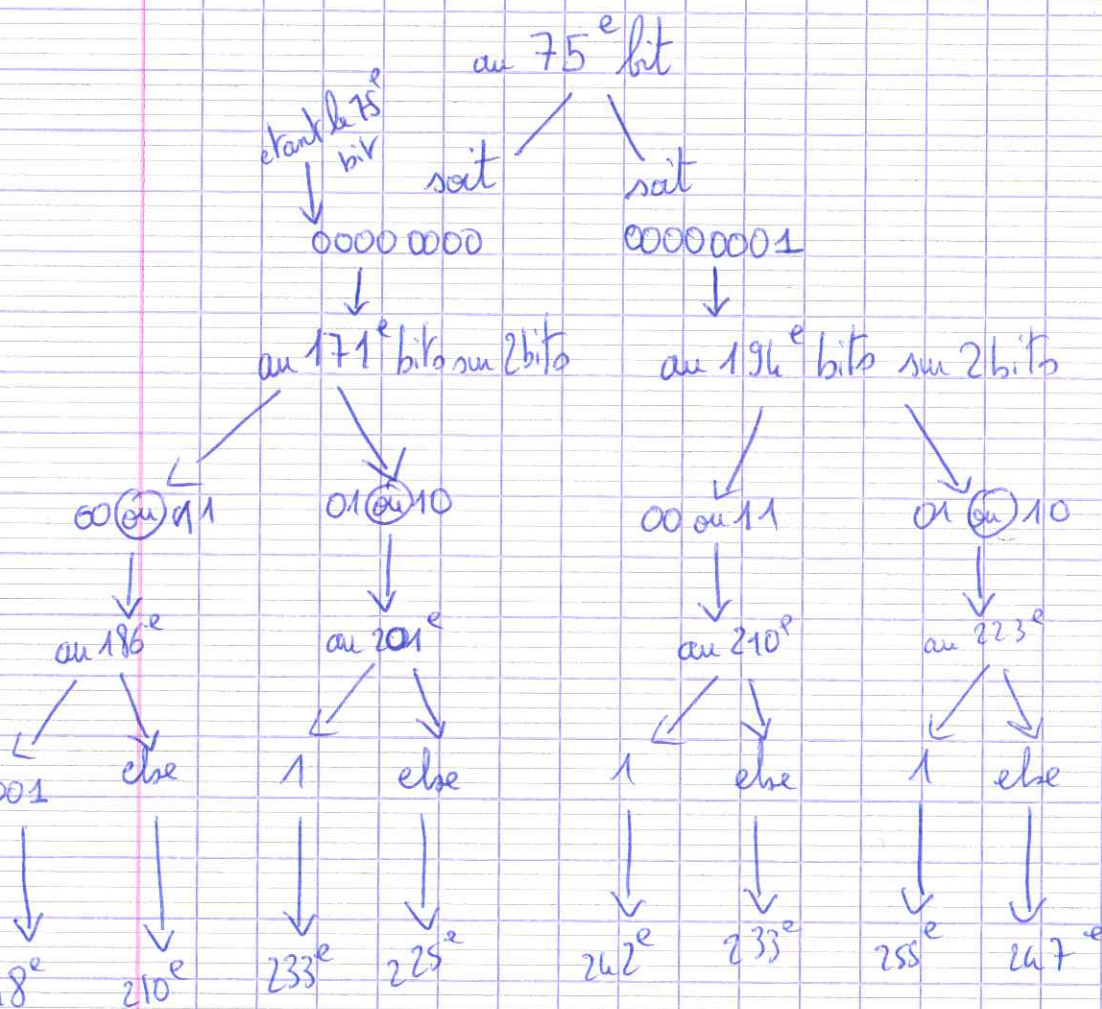 au 75e bit
étant le 75e
bit
soit soit
00000000 00000001
au 171e bits sur 2 bits au 194e bits sur 2 bits
00 ou 11 01 ou 10 00 ou 11 01 ou 10
au 186e au 201e au 210e au 223e
001 else 1 else 1 else 1 else
18e 210e 233e 225e 242e 233e 255e 247e